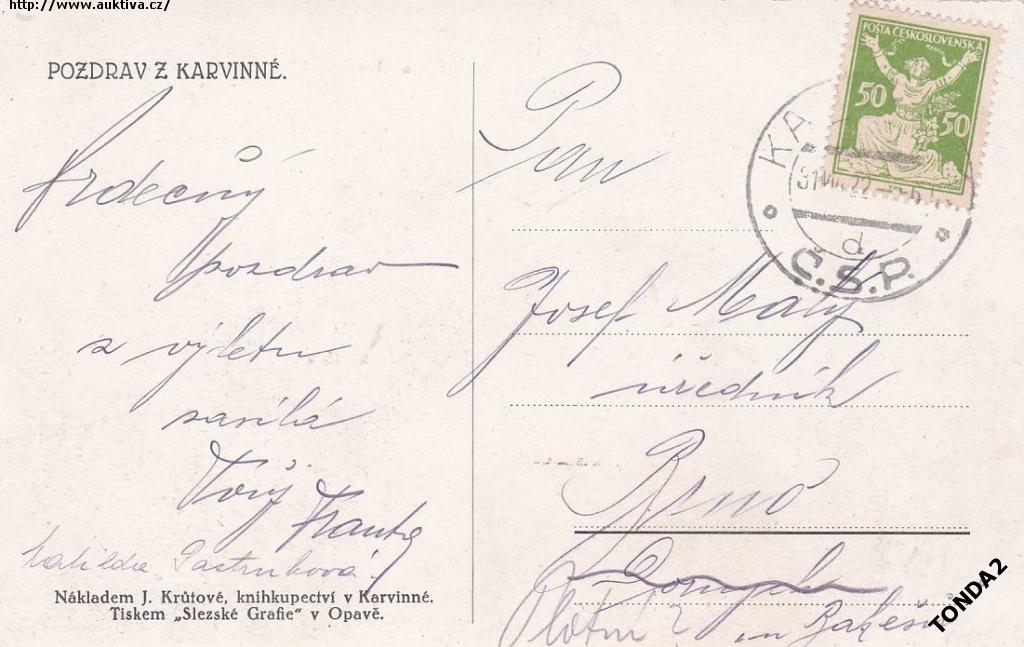 http://www.auktiva.cz/
POZDRAV Z KARVINNÉ.
Srdečný
pozdrav
z výletu
zasílá
Tvůj Franta
Nákladem J. Krůtové, knihkupectví v Karvinné.
Tiskem „Slezské Grafie“ v Opavě.
POŠTA ČESKOSLOVENSKA
50 50
KA
31 22
d
Č.S.P.
Pan
Josef Malý
úředník
Brno
TONDA2